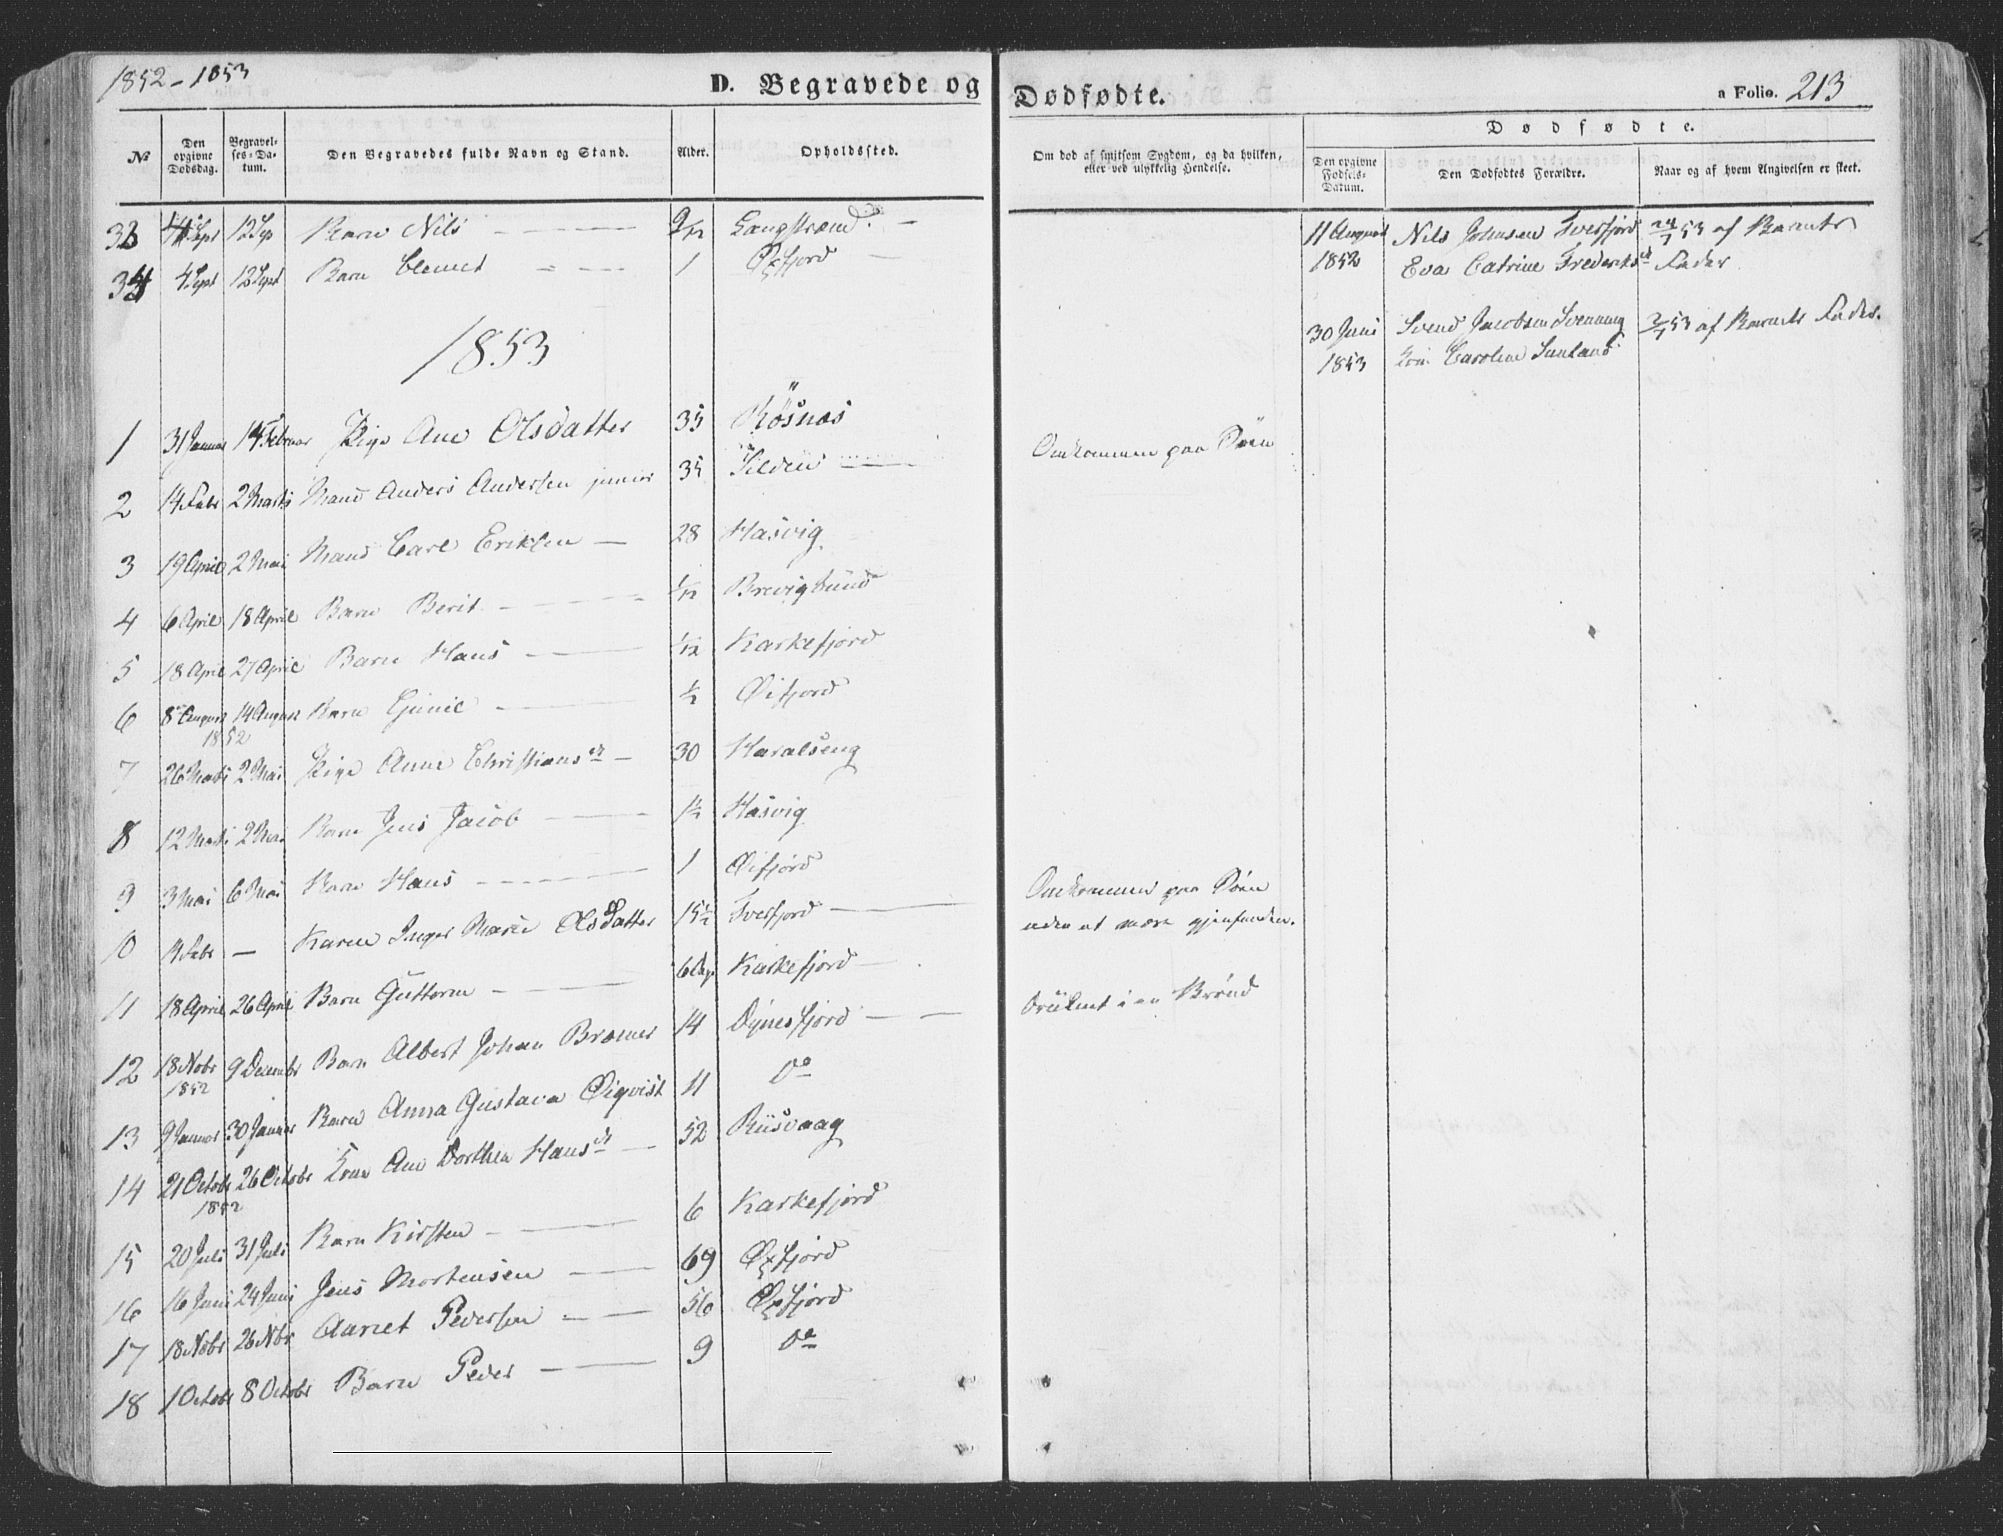 1852-1853
D. Begravede og
№
Den opgivne Dødsdag.
Begravelses-Datum.
Den Begravedes fulde Navn og Stand.
Alder.
Opholdssted.
33 4 Sept 12 Sep Barn Nils 9/12 Langstrand
34 4 Sept 12 Sept Barn Clemet 1 Øxfjord
1853
1 31 Januar 14 Februar Pige Ane Olsdatter 35 Røsnæs
2 14 Febr 2 Marts Mand Anders Andersen junior 35 Silden
3 19 April 2 Mai Mand Carl Eriksen 28 Hasvig
4 6 April 18 April Barn Berit 1/12 Brevigsund
5 18 April 27 April Barn Hans 1/12 Karkefjord
6 8 August 14 August Barn Gunil ½ Øifjord
1852
7 26 Marts 2 Mai Pige Anne Christiansdr 30 Haralseng
8 12 Marts 2 Mai Barn Jens Jacob 1½ Hasvig
9 3 Mai 6 Mai Barn Hans 1 Øifjord
10 14 Febr — Karen Inger Marie Olsdatter 15½ Tverfjord
11 18 April 26 April Barn Guttorm 6 Dage Karkefjord
12 18 Nobr 9 Decembr Barn Albert Johan Bræmer 14 Dønesfjord
1852
13 9 Januar 30 Januar Barn Anna Gustava Øiqvist 11 Do
14 21 Octobr 26 Octobr Kone Ane Dorthea Hansdr 52 Riisvaag
1852
15 20 Juli 31 Juli Barn Kirsten 6 Karkefjord
16 16 Juni 24 Juni Jens Mortensen 69 Øxfjord
17 18 Nobr 26 Nbr Aanet Pedersen 56 Øxfjord
18 1 Octobr 8 Octobr Barn Peder 9 Do
Dødfødte.
a Folio. 213
Om død af smitsom Sygdom, og da hvilken, eller ved ulykkelig Hendelse.
Dødfødte.
Den opgivne Fødsels-Datum.
Den Dødfødtes Forældre.
Naar og af hvem Angivelsen er skeet.
11 August Nils Johnsen Tverfjord 24/7 53 af Barnets
1852 Eva Catrine Frederiksdr Fader
30 Juni Svend Jacobsen Svenning 3/7 53 af Barnets Fader.
1853 Kone Caroline
Omkommen paa Søen
Omkommen paa Søen
uden at være gjenfunden.
Druknet i en Brønd